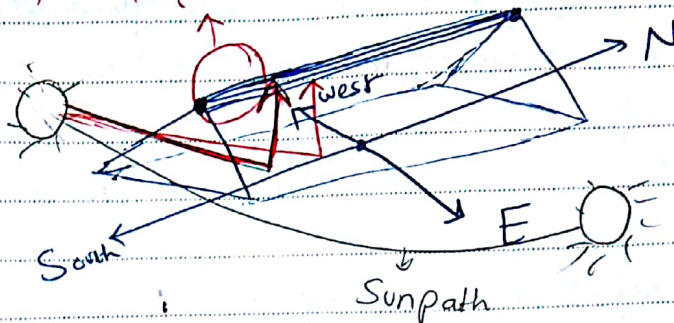 N
west
E
South
Sunpath